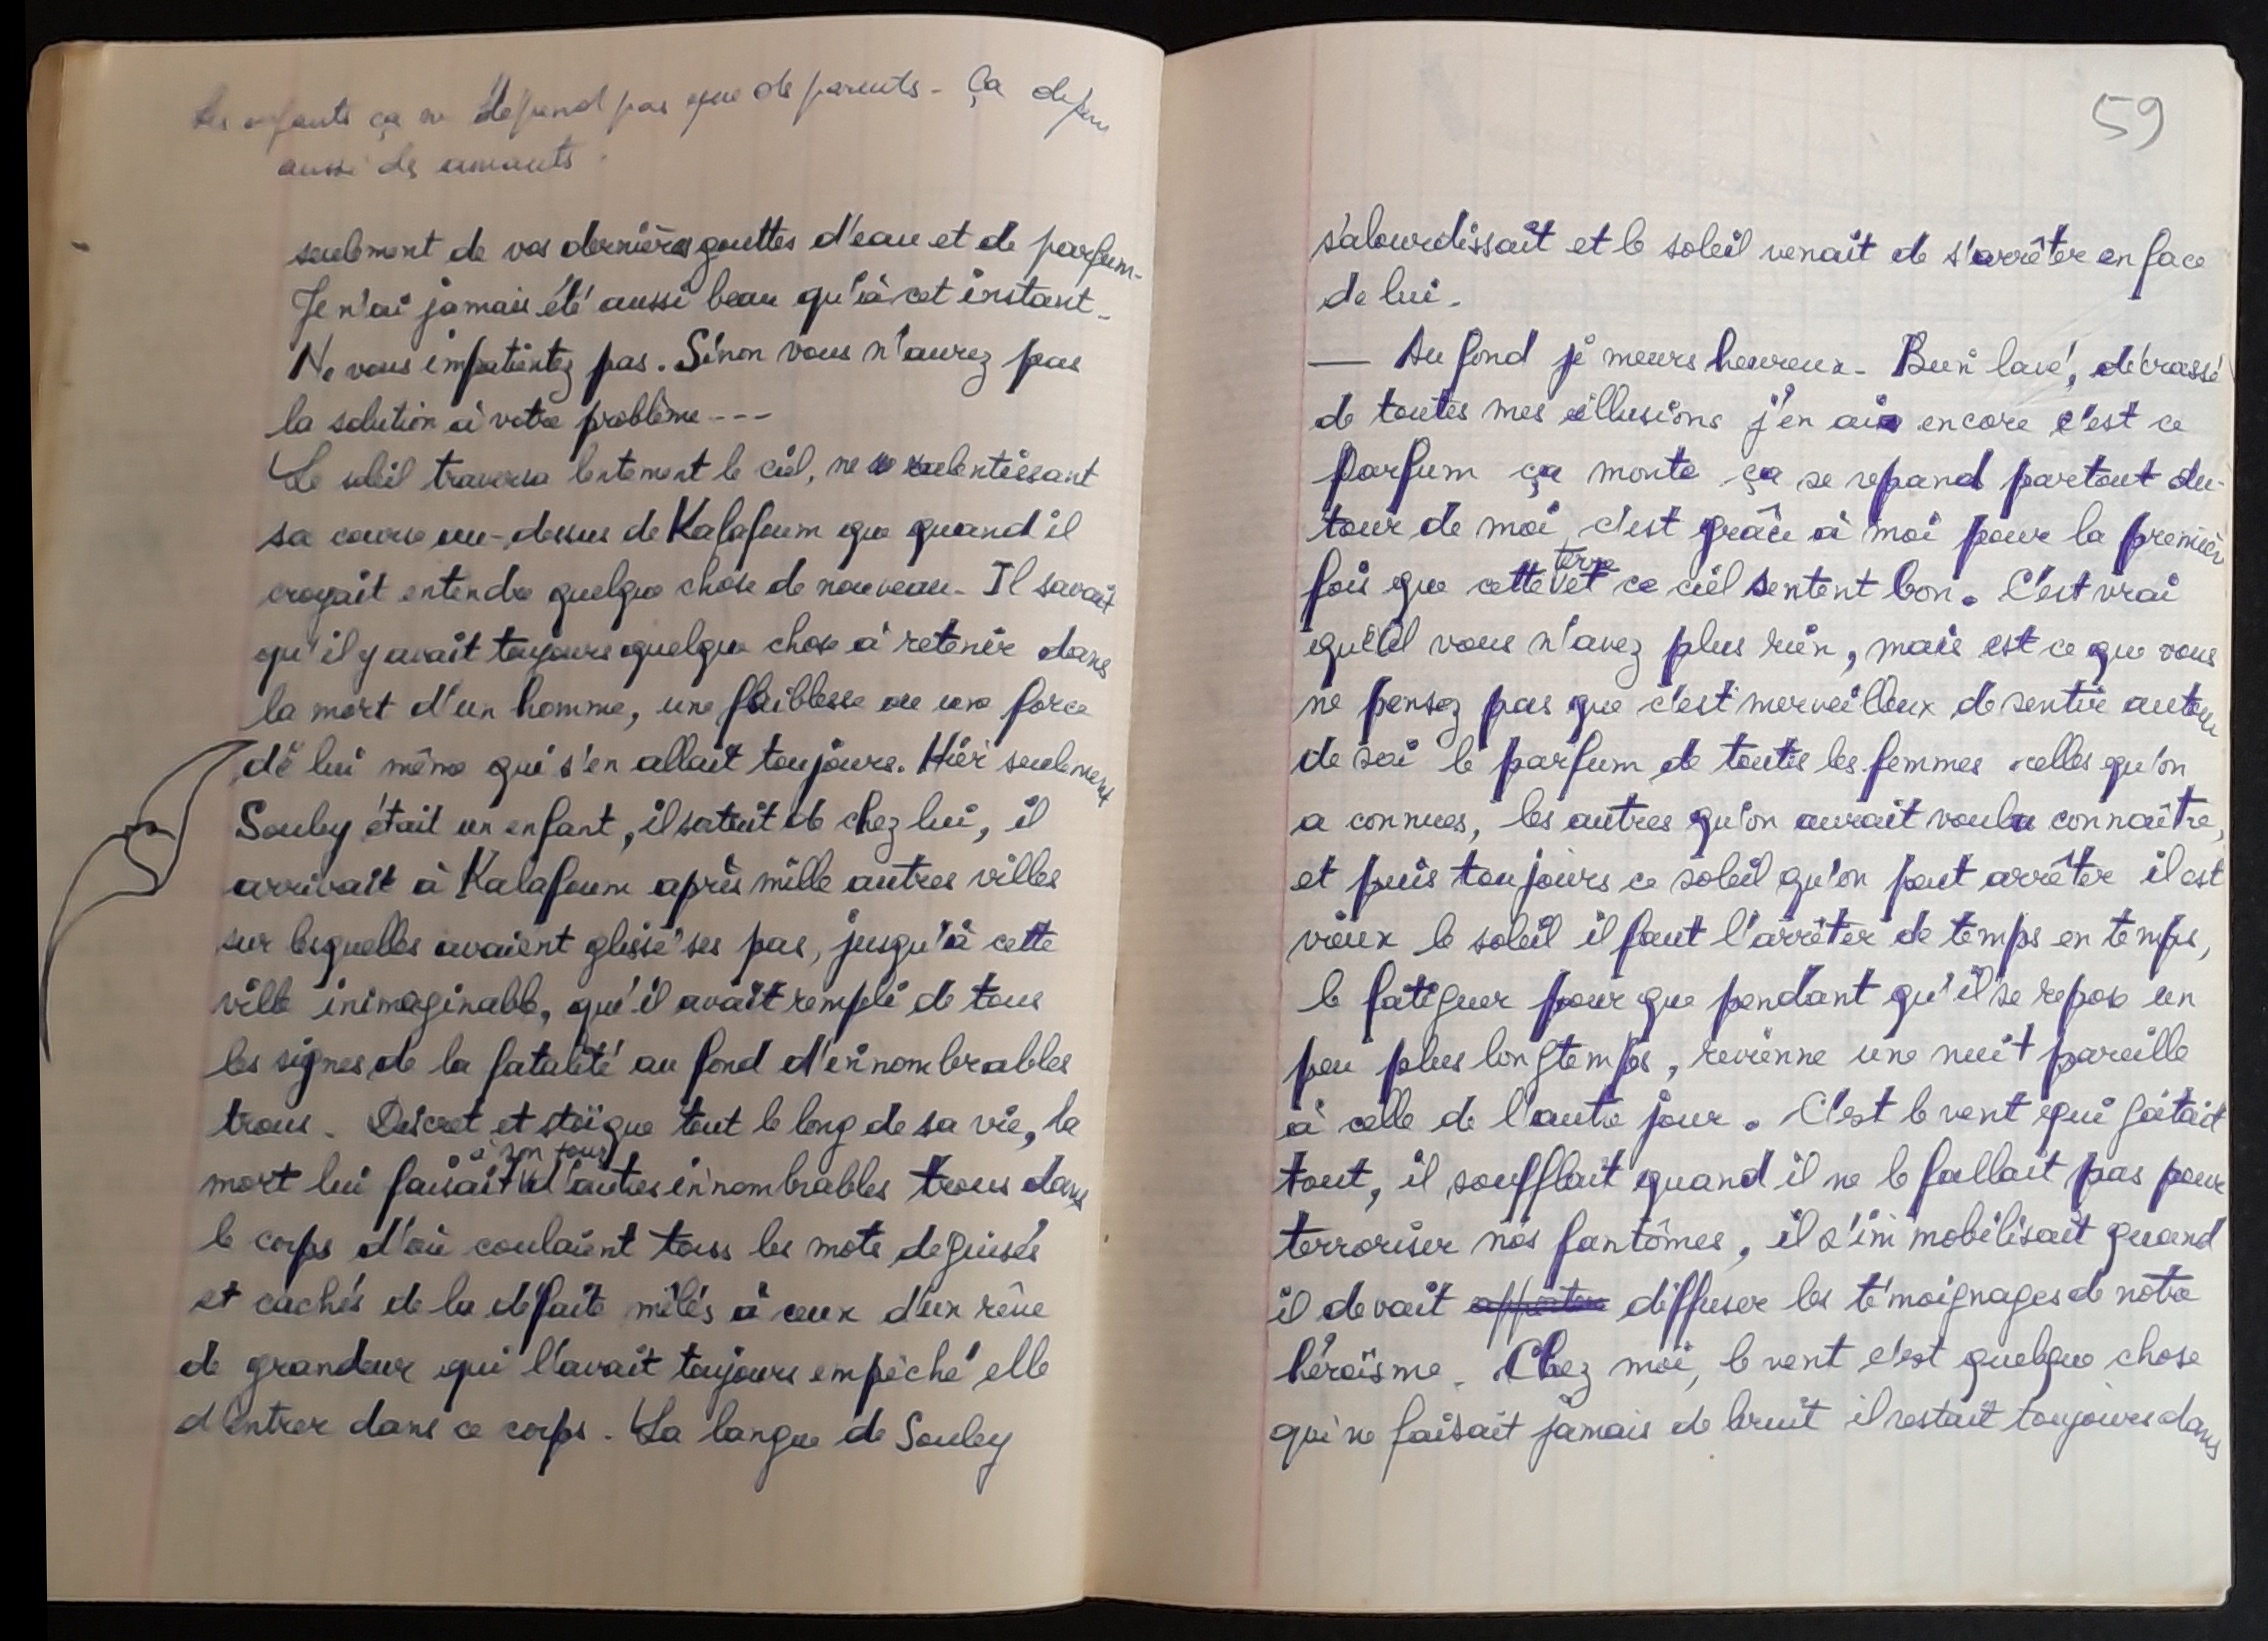 Les enfants ça ne dépend pas que de parents - Ça depen
aussi des amants.
seulement de vos dernières gouttes d'eau et de parfum -
Je n'ai jamais été aussi beau qu'à cet instant -
Ne vous impatientez pas. Sinon vous n'aurez pas
la solution à votre problème ---
Le soleil traversa lentement le ciel, ne ralentissant
sa course au-dessus de Kalafoum que quand il
croyait entendre quelque chose de nouveau - Il savait
qu'il y avait toujours quelque chose à retenir dans
la mort d'un homme, une faiblesse ou une force
de lui même qui s'en allait toujours. Hier seulement
Souley était un enfant, il sortait de chez lui, il
arrivait à Kalafoum après mille autres villes
sur lesquelles avaient glissé ses pas, jusqu'à cette
ville inimaginable, qu'il avait rempli de tous
les signes de la fatalité au fond d'innombrables
trous. Discret et stoïque tout le long de sa vie, la
à son tour
mort lui faisait d'autres innombrables trous dans
le corps d'où coulaient tous les mots deguisés
et cachés de la défaite mêlés à ceux d'un rêve
de grandeur qui l'avait toujours empêché elle
d'entrer dans ce corps. La langue de Souley
59
s'alourdissait et le soleil venait de s'arrêter en face
de lui.
— Au fond je meurs heureux - Bien lavé, décrassé
de toutes mes illusions j'en ai encore c'est ce
parfum ça monte ça se repand partout au-
tour de moi, c'est grâce à moi pour la première
terre
fois que cette et ce ciel sentent bon. C'est vrai
que vous n'avez plus rien, mais est ce que vous
ne pensez pas que c'est merveilleux de sentir autour
de soi le parfum de toutes les femmes celles qu'on
a connues, les autres qu'on aurait voulu connaître,
et puis toujours ce soleil qu'on peut arrêter il est
vieux le soleil il faut l'arrêter de temps en temps,
le fatiguer pour que pendant qu'il se repose un
peu plus longtemps, revienne une nuit pareille
à celle de l'autre jour. C'est le vent qui gâtait
tout, il soufflait quand il ne le fallait pas pour
terroriser nos fantômes, il s'immobilisait quand
il devait diffuser les témoignages de notre
héroïsme. Chez moi, le vent c'est quelque chose
qui ne faisait jamais de bruit il restait toujours dans